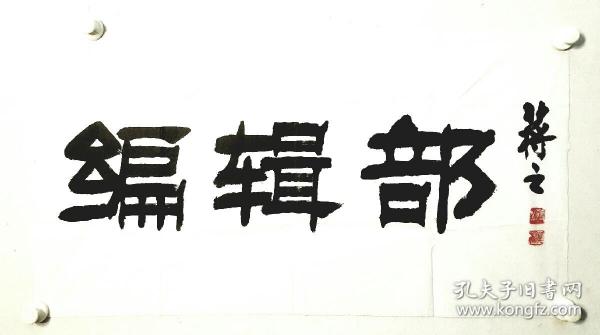 编辑部
蒋之
孔夫子旧书网
www.kongfz.com